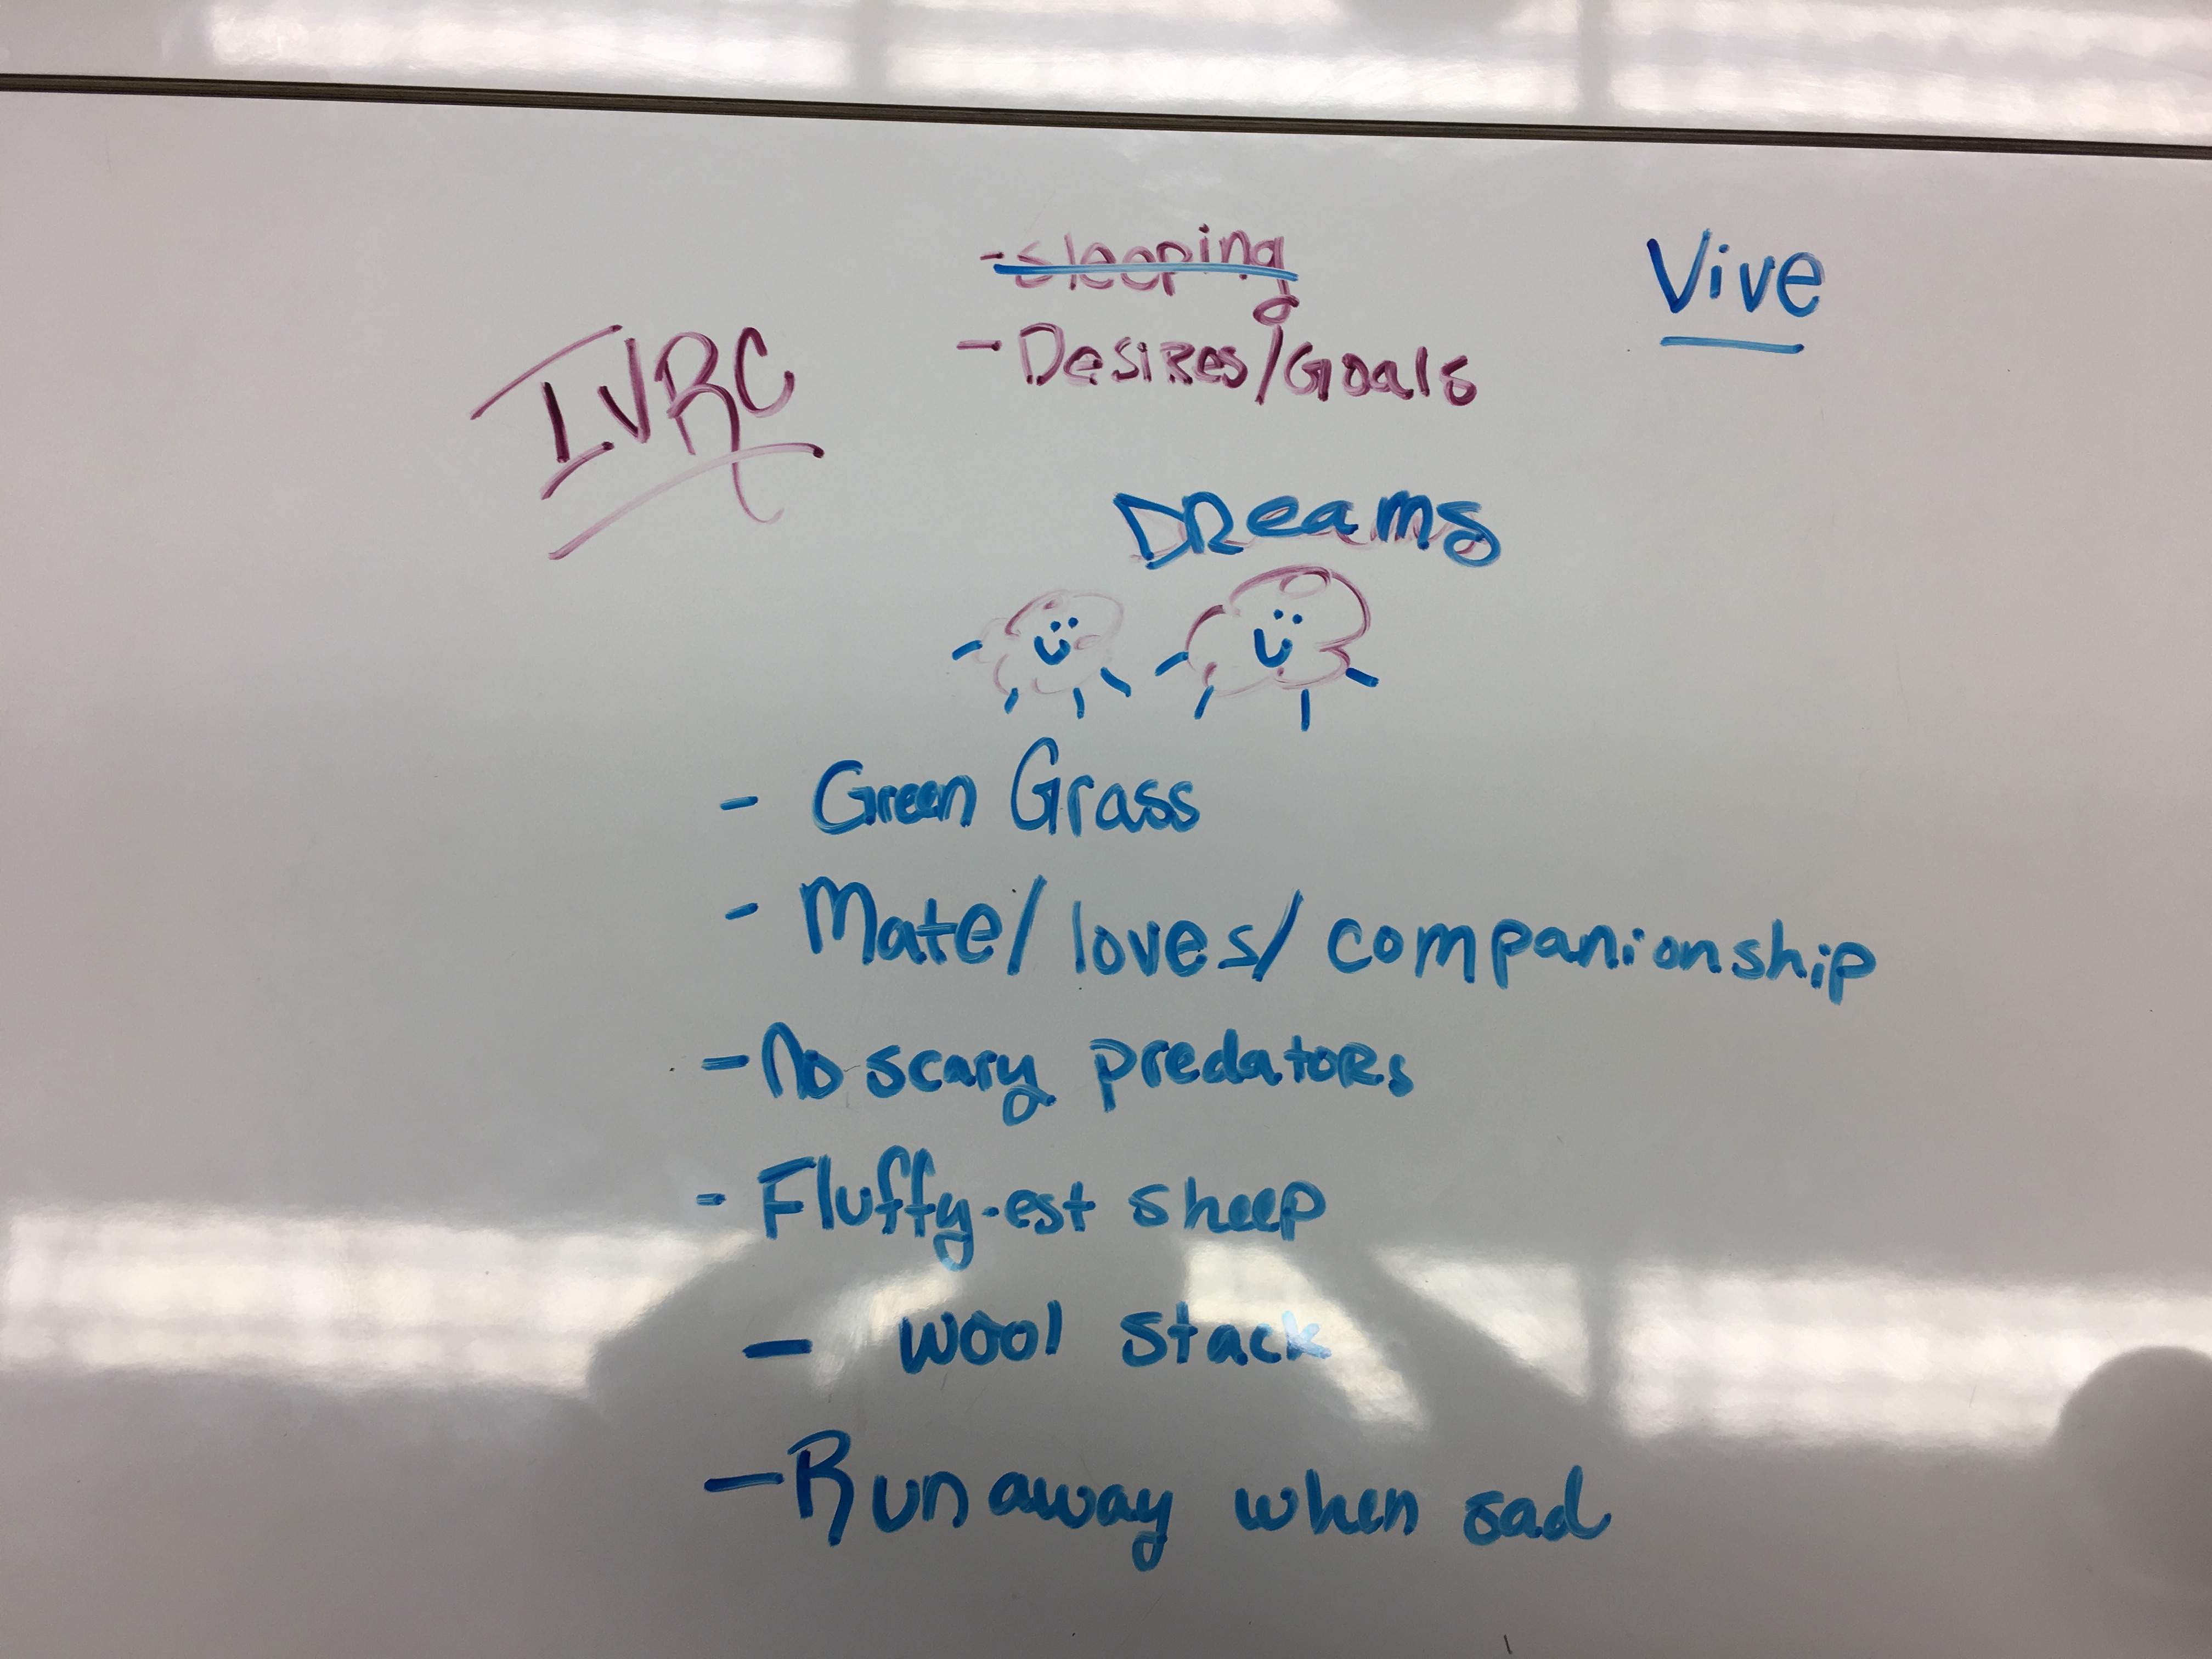 IVRC
- sleeping
Vive
- Desires/Goals
Dreams
- Green Grass
- Mate/loves/companionship
- No scary predators
- Fluffy-est sheep
- wool stack
- Run away when sad